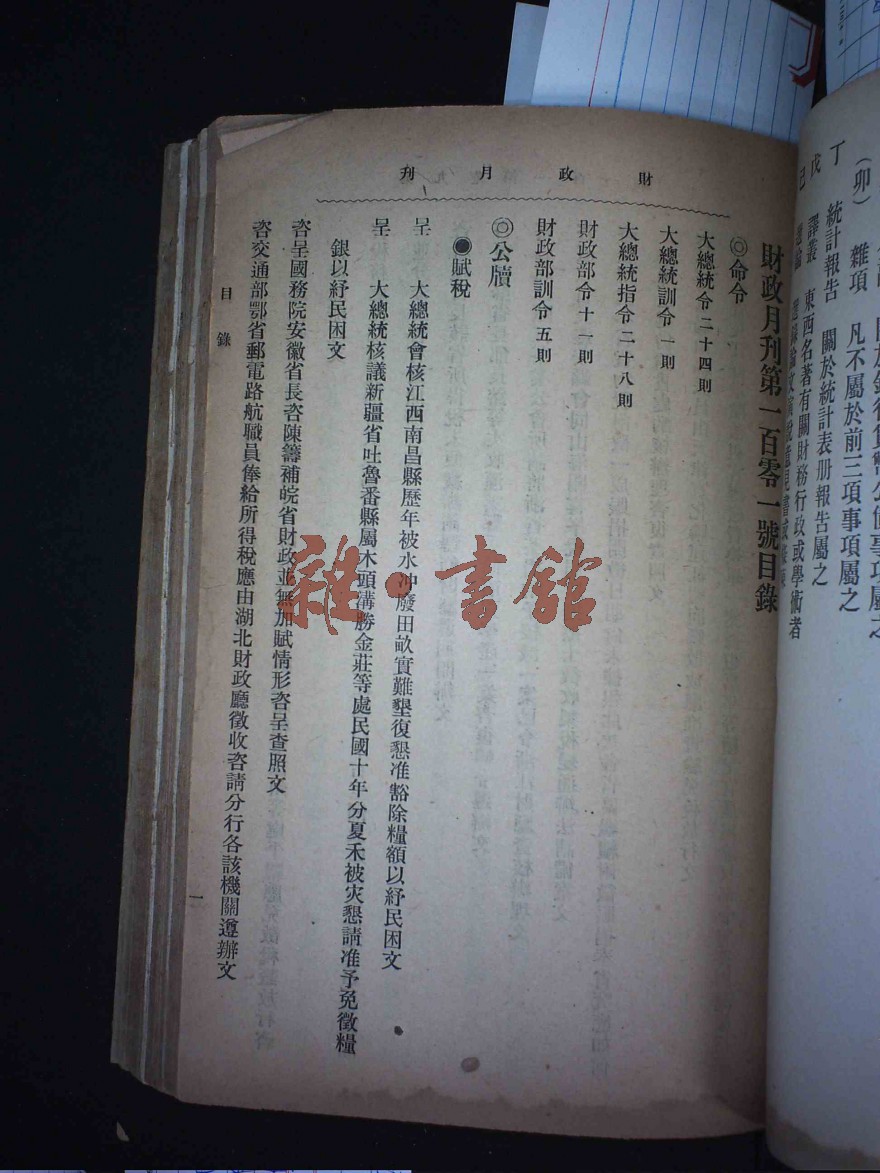 （卯）　雜項　凡不屬於前三項事項屬之
丁　統計報告　關於統計表册報告屬之
戊　譯叢　東西名著有關財務行政或學術者
己
財政月刊
財政月刊第一百零一號目錄
◎命令
大總統令二十四則
大總統訓令一則
大總統指令二十八則
財政部令十一則
財政部訓令五則
◎公牘
●賦稅
呈　大總統會核江西南昌縣歷年被水沖廢田畝實難墾復懇准豁除糧額以紓民困文
呈　大總統核議新疆省吐魯番縣屬木頭溝勝金莊等處民國十年分夏禾被灾懇請准予免徵糧
銀以紓民困文
咨呈國務院安徽省長咨陳籌補皖省財政並無加賦情形咨呈查照文
咨交通部鄂省郵電路航職員俸給所得稅應由湖北財政廳徵收咨請分行各該機關遵辦文
目錄
一
雜·書館